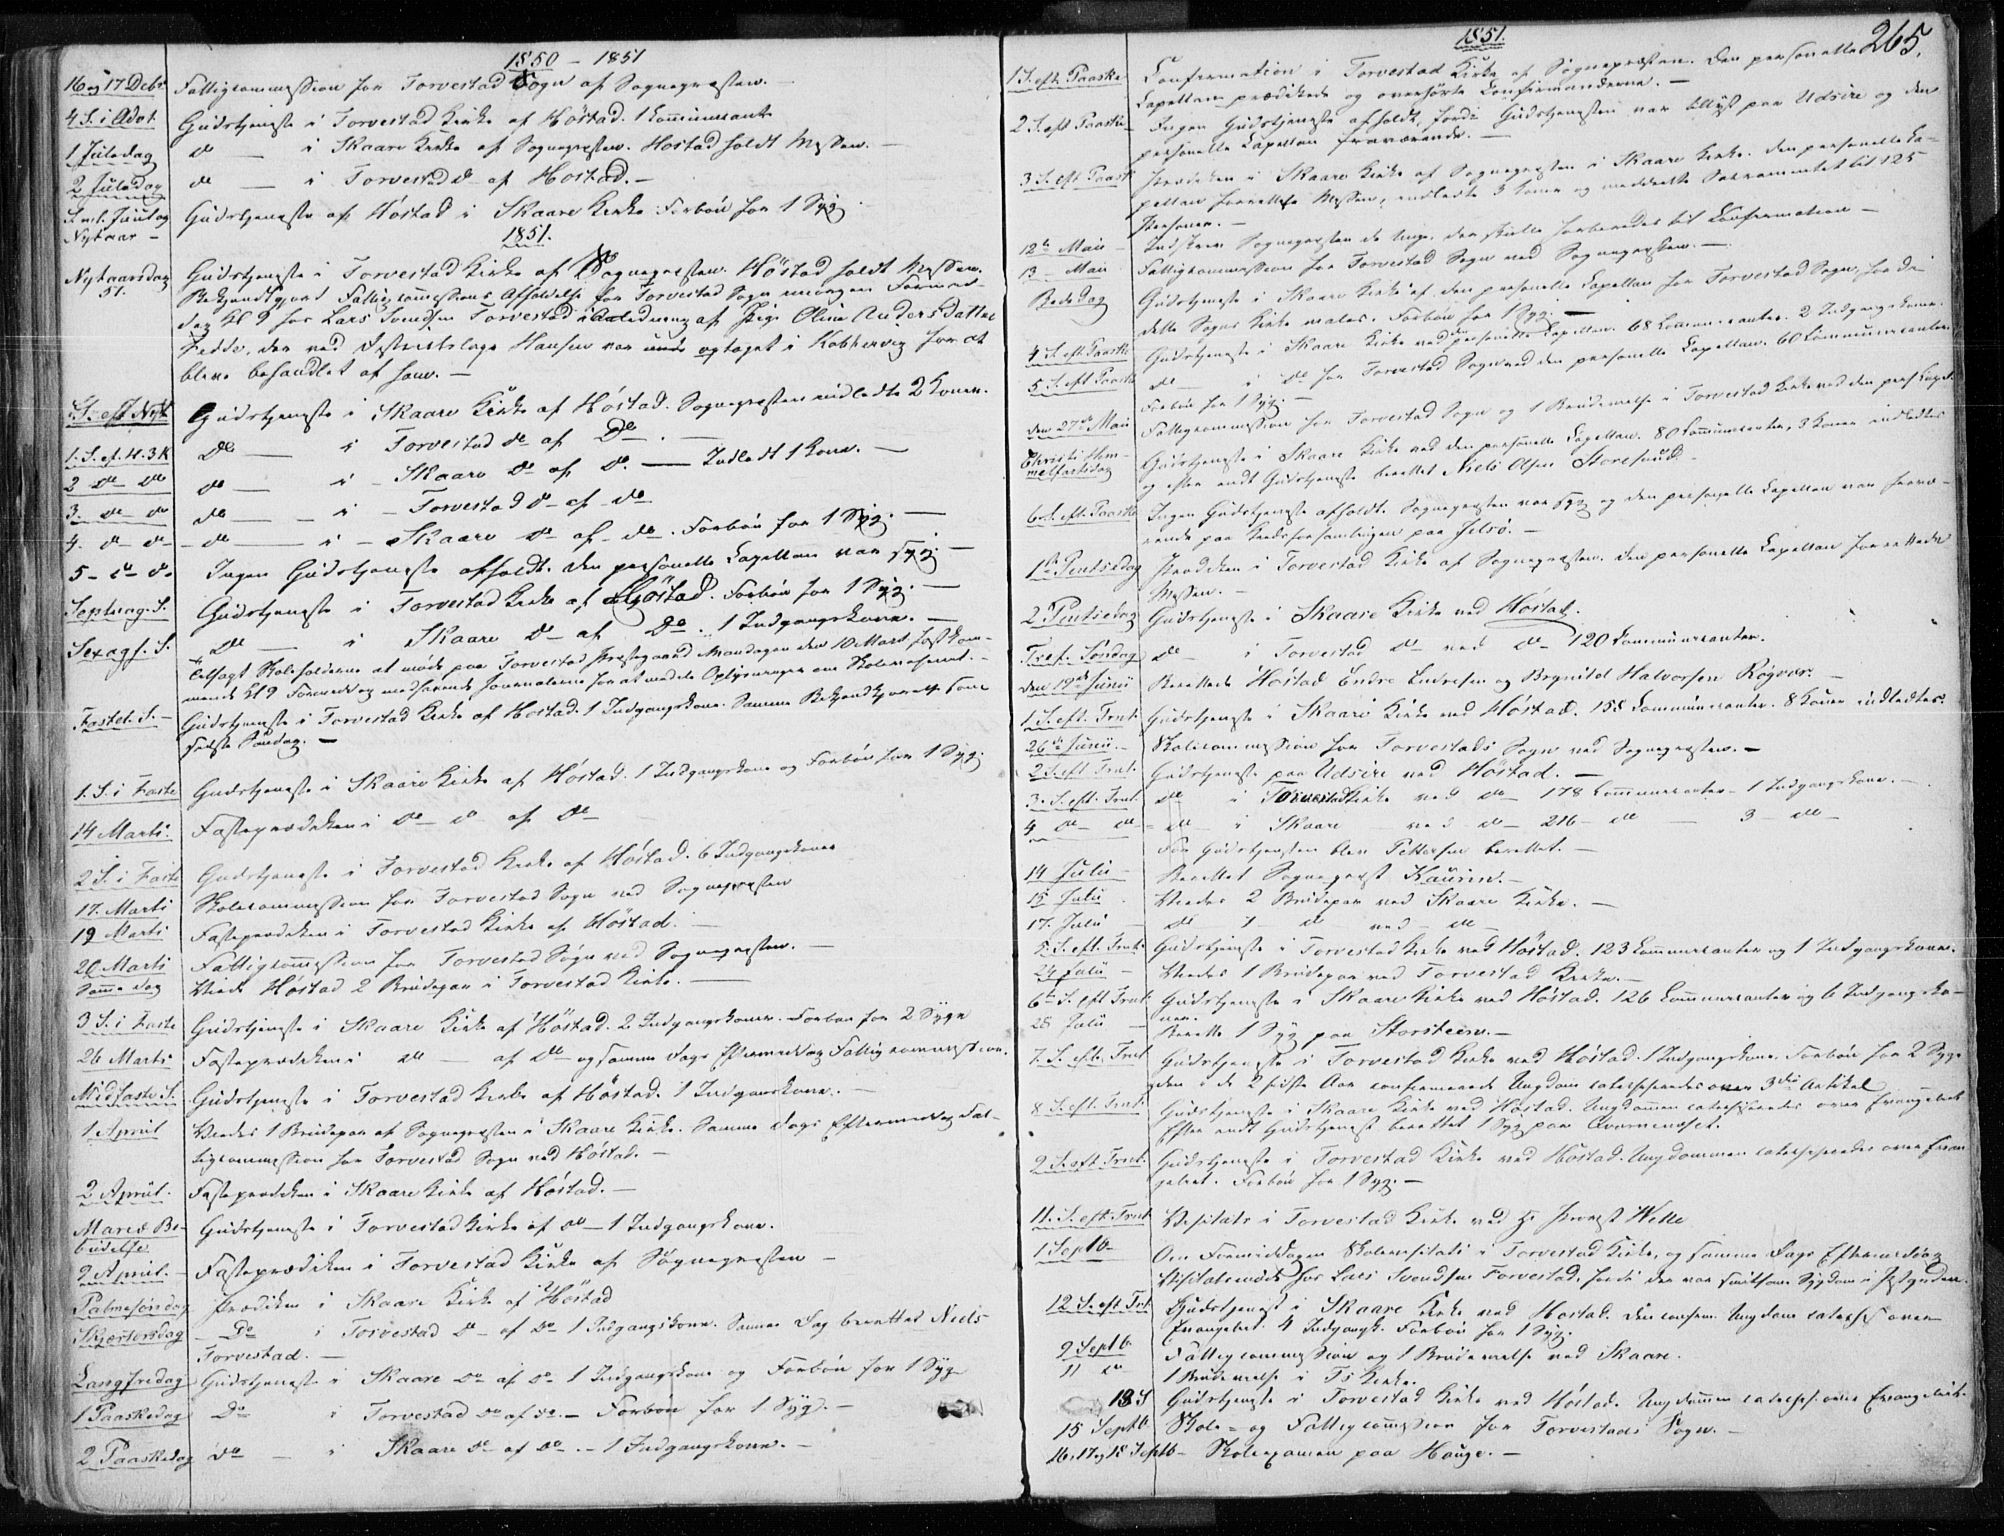 1850 – 1851
16 og 17 Debr. Fattigcommission for Torvestad Sogn af Sognepræsten.
4 S. i Advt. Gudstjeneste i Torvestad Kirke af Höstad. 1 Communicant
1 Juledag do — i Skaare Kirke af Sognepræsten. Höstad holdt Messen. —
2 Juledag do — i Torvestad do af Höstad. —
S. ml. Juul og Gudstjeneste af Höstad i Skaare Kirke Forbön for 1 Syg.
Nytaar —
1851.
Nytaarsdag Gudstjeneste i Torvestad Kirke af Sognepræsten. Höstad holdt Messen.
51. Bekjendtgjort Fattigcommissions Afholdelse for Torvestad Sogn imorgen Formid-
dag Kl 9 hos Lars Svendsen Torvestad i Anledning af Pige Oline Andersdatter
Fedde, der ved Districtslæge Hansen var optaget i Kobbervig for at
blive behandlet af ham. —
S. eft Nyt Gudstjeneste i Skaare Kirke af Höstad. Sognepræsten indledte 2 Koner.
1. S. ef. H. 3 K do — i Torvestad do af Do. —
2 do do do — i – Skaare do af do. — Indledt 1 Kone. —
3. do do do — i – Torvestad do af do
4. do do – do — i – Skaare do af do. Forbön for 1 Syg. —
5 – do do Ingen Gudstjeneste afholdt. Den personelle Capellan var syg. —
Septuag. S. Gudstjeneste i Torvestad Kirke af Höstad. Forbön for 1 Syg. —
Sexags. S. Do — i Skaare do af Do. 1 Indgangskone. —
Tilsagt Skoleholderne at møde paa Torvestad Præstegaard Mandagen den 10 Marts førstkom-
mende Kl 9 Formiddag medhavende Journalerne for at meddele Oplysninger om Skolevæsenet. –
Fastel. S. — Gudstjeneste i Torvestad Kirke af Höstad. 1 Indgangskone. Samme Bekjendtgjørelse som
første Søndag. —
1. S. i Faste Gudstjeneste i Skaare Kirke af Höstad. 1 Indgangskone og Forbön for 1 Syg.
14 Marts. Fasteprædiken i do – do af do
2 S. i Faste Gudstjeneste i Torvestad Kirke af Höstad. 6 Indgangskoner
17. Marts Skolecommission for Torvestad Sogn ved Sognepræsten
19 Marts Fasteprædiken i Torvestad Kirke af Höstad. —
20 Marts Fattigcommission for Torvestad Sogn ved Sognepræsten. —
Samme Dag Viede Höstad 2 Brudepar i Torvestad Kirke. —
3 S. i Faste Gudstjeneste i Skaare Kirke af Höstad. 2 Indgangskoner. Forbön for 2 Syge
26 Marts Fasteprædiken i do — af do og samme Dags Eftermiddag Fattigcommission.
Midfaste S. Gudstjeneste i Torvestad Kirke af Höstad. 1 Indgangskone. —
1 April Viedes 1 Brudepar af Sognepræsten i Skaare Kirke. Samme Dags Eftermiddag Fat-
tigcommission for Torvestad Sogn ved Höstad. —
2 April. Fasteprædiken i Skaare Kirke af Höstad. —
Mariæ Be- Gudstjeneste i Torvestad Kirke af do — 1 Indgangskone.
budelse
9 April. – Fasteprædiken i Torvestad Kirke af Sognepræsten —
Palmesöndag Prædiken i Skaare Kirke af Höstad
Skjærtorsdag – Do i Torvestad do – af do 1 Indgangskone. Samme Dag berettet Niels
Torvestad. —
Langfredag Gudstjeneste i Skaare do af do 1 Indgangskone og Forbön for 1 Syg
1 Paaskedag Do i Torvestad do af do. — Forbön for 1 Syg. —
2 Paaskedag do – i Skaare do af do. – 1 Indgangskone. —
1851. 265.
1 S. eft. Paaske Confirmation i Torvestad Kirke af Sognepræsten. Den personelle
Capellan prædikede og overhørte Confirmanderne. —
2 S. eft Paaske – Ingen Gudstjeneste afholdt, fordi Gudstjenesten var tillyst paa Udsire og den
personelle Capellan fraværende. —
3 S. eft Paaske Prædiken i Skaare Kirke af Sognepræsten i Skaare Kirke. Den personelle Ca-
pellan forrettede Messen, indledte 3 Koner og meddeelte Sacramentet til 125
Personer. —
12te Mai – Indskrev Sognepræsten de Unge, der skulle forberedes til Confirmation —
13 – Mai Fattigcommission for Torvestad Sogn ved Sognepræsten. —
Bededag Gudstjeneste i Skaare Kirke af den personelle Capellan for Torvestad Sogn, fordi
dette Sogns Kirke males. Forbön for 1 Syg. —
4 S. eft Paaske Gudstjeneste i Skaare Kirke ved personelle Capellan. 68 Communicanter. 2 Indgangskoner.
5 S. eft Paaske do — i do for Torvestad Sogn ved den personelle Capellan. 60 Communicanter
Forbön for 1 Syg. —
den 27de Mai Fattigcommission for Torvestad Sogn og 1 Brudevielse i Torvestad Kirke ved den pers Capel.
Christi Him- Gudstjeneste i Skaare Kirke ved den personelle Capellan. 80 Communicanter, 3 Koner indledtes
melfartsdag og efter endt Gudstjeneste berettet Niels Olsen Storesund. —
6 S. eft. Paaske Ingen Gudstjeneste afholdt. Sognepræsten var syg og den personelle Capellan var fravæ-
rende paa Kredsforsamlingen paa Jelsö. —
1ste Pintsedag Prædiken i Torvestad Kirke af Sognepræsten. Den personelle Capellan forrettede
Messen. —
2 Pintsedag Gudstjeneste i Skaare Kirke ved Höstad.
Tref. Søndag do — i Torvestad do ved do – 120 Communicanter.
den 19de Junii Berettede Höstad Endre Endresen og Brynild Halvorsen Rögvær. —
1 S. eft. Trnt. Gudstjeneste i Skaare Kirke ved Höstad. 155 Communicanter. 8 Koner indledtes.
26de Junii. – Skolecommission for Torvestads Sogn ved Sognepræsten. —
2 S. eft Trnt. Gudstjeneste paa Udsire ved Höstad. —
3. S. eft. Trnt. do i Torvestad Kirke ved do – 178 Communicanter – 1 Indgangskone. —
4 do do – do – i Skaare – ved do – 216 – do — 3 do –
Før Gudstjenesten blev Pettersen berettet. —
14 Julii – Berettet Sognepræst Kaurin. —
15 Julii Viedes 2 Brudepar ved Skaare Kirke. —
17. Julii do 1 do ved do —
5. S. eft. Trnt. Gudstjeneste i Torvestad Kirke ved Höstad. 123 Communicanter og 1 Indgangskone.
24 Julii – Viedes 1 Brudepar ved Torvestad Kirke. —
6te S. eft Trnt. Gudstjeneste i Skaare Kirke ved Höstad. 126 Communicanter og 6 Indgangsko-
ner.
28 Julii – Berettet 1 Syg paa Storsteen. —
7. S. eft. Trnt Gudstjeneste i Torvestad Kirke ved Höstad. 1 Indgangskone. Forbön for 2 Syge
den i de 2 sidste Aar confirmerede Ungdom catechiseredes over 3die Artikel
8 S. eft. Trnt. Gudstjeneste i Skaare Kirke ved Höstad. Ungdommen catechiseredes over Evangeliet
Efter endt Gudstjeneste berettet 1 Syg paa Qvernenæset.
9 S. eft. Trnt. Gudstjeneste i Torvestad Kirke ved Höstad. Ungdommen catechiseredes over Evan-
geliet. Forbön for 1 Syg. —
11. S. eft. Trnt Visitats i Torvestad Kirke ved Hr Provst Welle
1 Septb – Om Formiddagen Skolevisitats i Torvestad Kirke, og samme Dags Eftermiddag
Visitatsmøde hos Lars Svendsen Torvestad, fordi der var smitsom Sygdom i Præstgrden.
12 S. eft Trt. Gudstjenest i Skaare Kirke ved Höstad. Den confirm. Ungdom catechis over
Evangeliet. 4 Indgangsk. Forbön for 1 Syg.
9 Septb Fattigcommission og 1 Brudevielse ved Skaare.
11 do 1 Brudevielse i Ts Kirke.
13 S Gudstjeneste i Torvestad Kirke ved Höstad. Ungdommen catechs. over Evangeliet.
15 Septb Skole – og Fattigcommission for Torvestads Sogn. —
16, 17 og 18 Septb – Skoleexamen paa Hauge. —